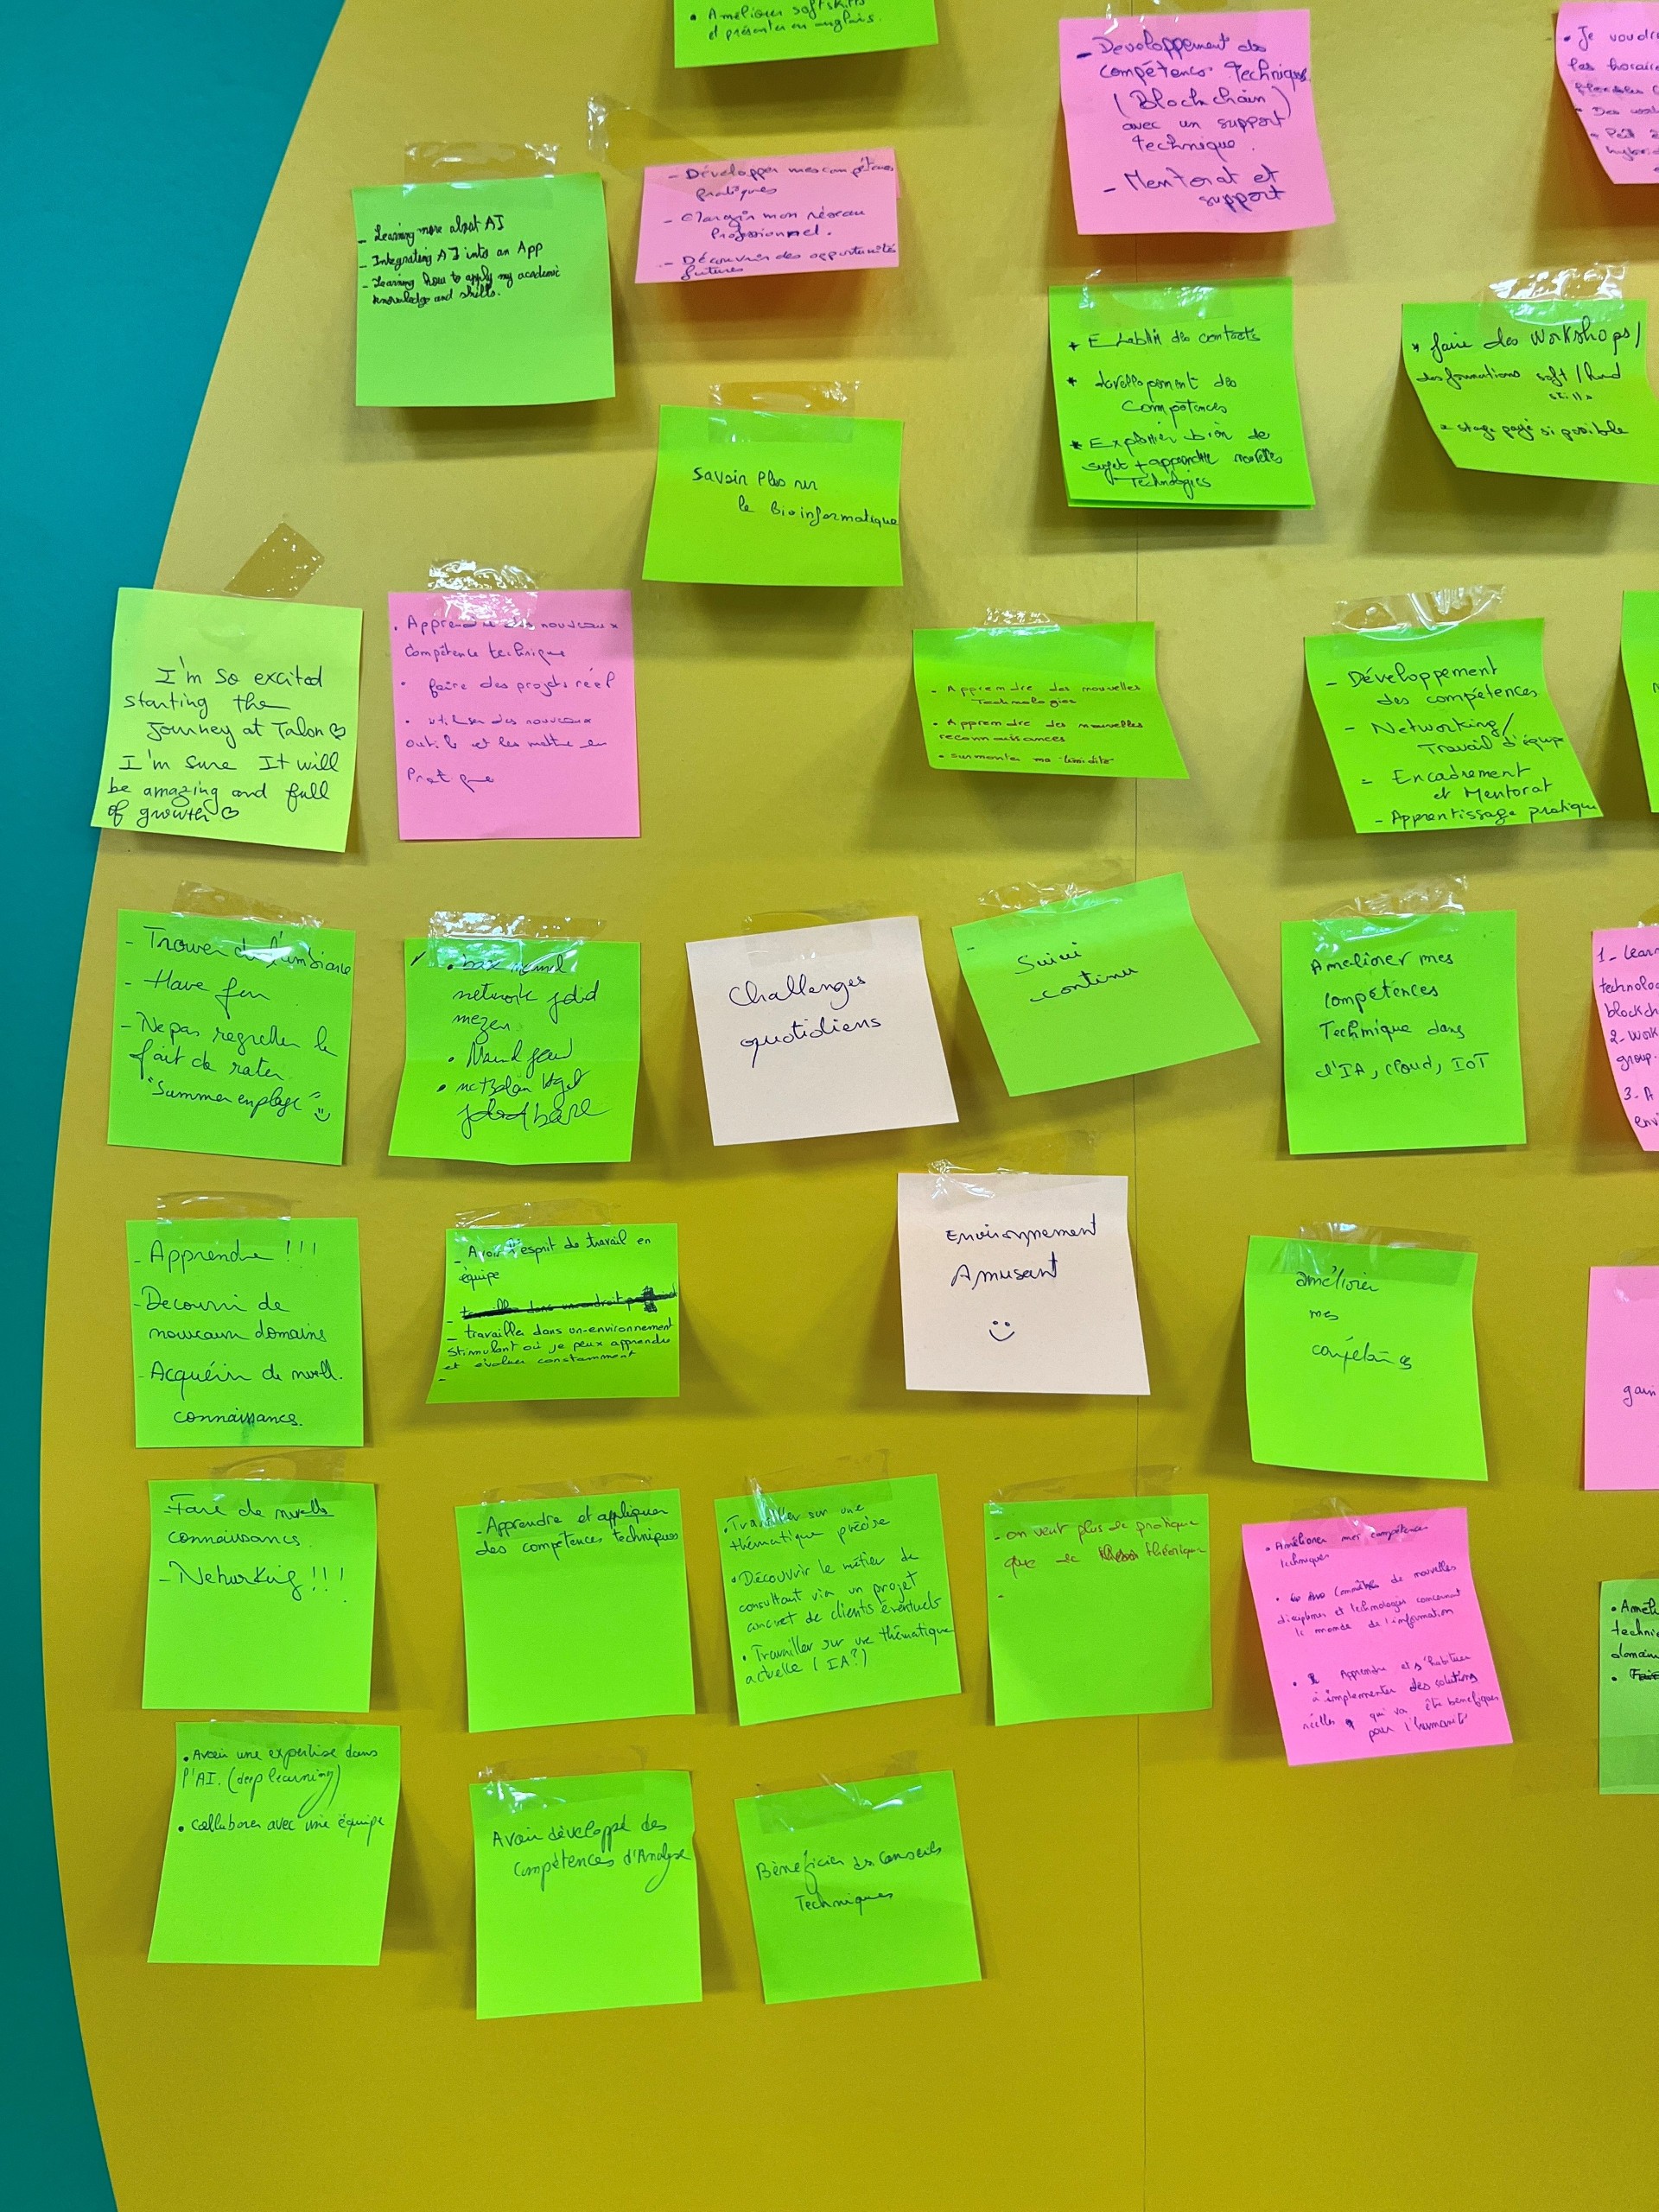 • Améliorer softskills
et présenter en anglais.
- Développement des
compétences Techniques
(Blockchain)
avec un support
technique.
- Mentorat et
support
• Je voudra
les horaire
flexibles
• Des
hybrid
- Learning more about AI
- Integrating AI into an App
- Learning how to apply my academic
knowledge and skills.
- Développer mes compétences
pratiques
- Elargir mon réseau
Professionnel.
- Découvrir des opportunités
futures
* Etablir des contacts
* developpement des
Compétences
* Exploiter bien le
sujet + apprendre nouvelles
Technologies
* faire des Workshops/
des formations soft / hard
skills
* stage payé si possible
Savoir Plus sur
le Bioinformatique
I'm so excited
starting the
journey at Talan ♡
I'm sure It will
be amazing and full
of growth ♡
• Apprendre des nouveaux
compétence technique
• faire des projets réel
• utiliser des nouveaux
outils et les mettre en
Pratique
- Apprendre des nouvelles
Technologies
• Apprendre des nouvelles
reconnaissances
• surmonter ma timidité
- Développement
des compétences
- Networking/
Travail d'équipe
- Encadrement
et Mentorat
- Apprentissage pratique
- Trouver de l'ambiance
- Have fun
- Ne pas regretter le
fait de rater
"Summer en plage" :)
network jdid
mezen
Challenges
quotidiens
- Suivi
continu
Ameliorer mes
compétences
Technique dans
l'IA, cloud, IoT
1- Lear
technolo
blockch
2- Wor
group.
3- A
envi
- Apprendre !!!
- Decouvrir de
nouveaux domains
- Acquérir de nvell.
connaissances.
- Avoir l'esprit de travail en
équipe
- travailler dans un environnement
stimulant où je peux apprendre
et évoluer constamment
-
Environnement
Amusant
:)
améliorer
mes
compétences
gain
- Faire de nvells
connaissances.
- Networking !!!
- Apprendre et appliquer
des compétences techniques
• Travailler sur une
thématique précise
• Découvrir le métier de
consultant via un projet
concret de clients éventuels
• Travailler sur une thématique
actuelle (IA?)
- on veut plus de pratique
que de théorique
-
• Améliorer mes compétences
techniques
• Connaître de nouvelles
disciplines et technologies concernant
le monde de l'information
• Apprendre et s'habituer
à implémenter des solutions
réelles qui va être bénéfiques
pour l'humanité
• Améli
techni
domain
•
• Avoir une expertise dans
l'AI. (deep learning)
• collaborer avec une équipe
Avoir développé des
Compétences d'Analyse
Bénéficier des Conseils
Techniques